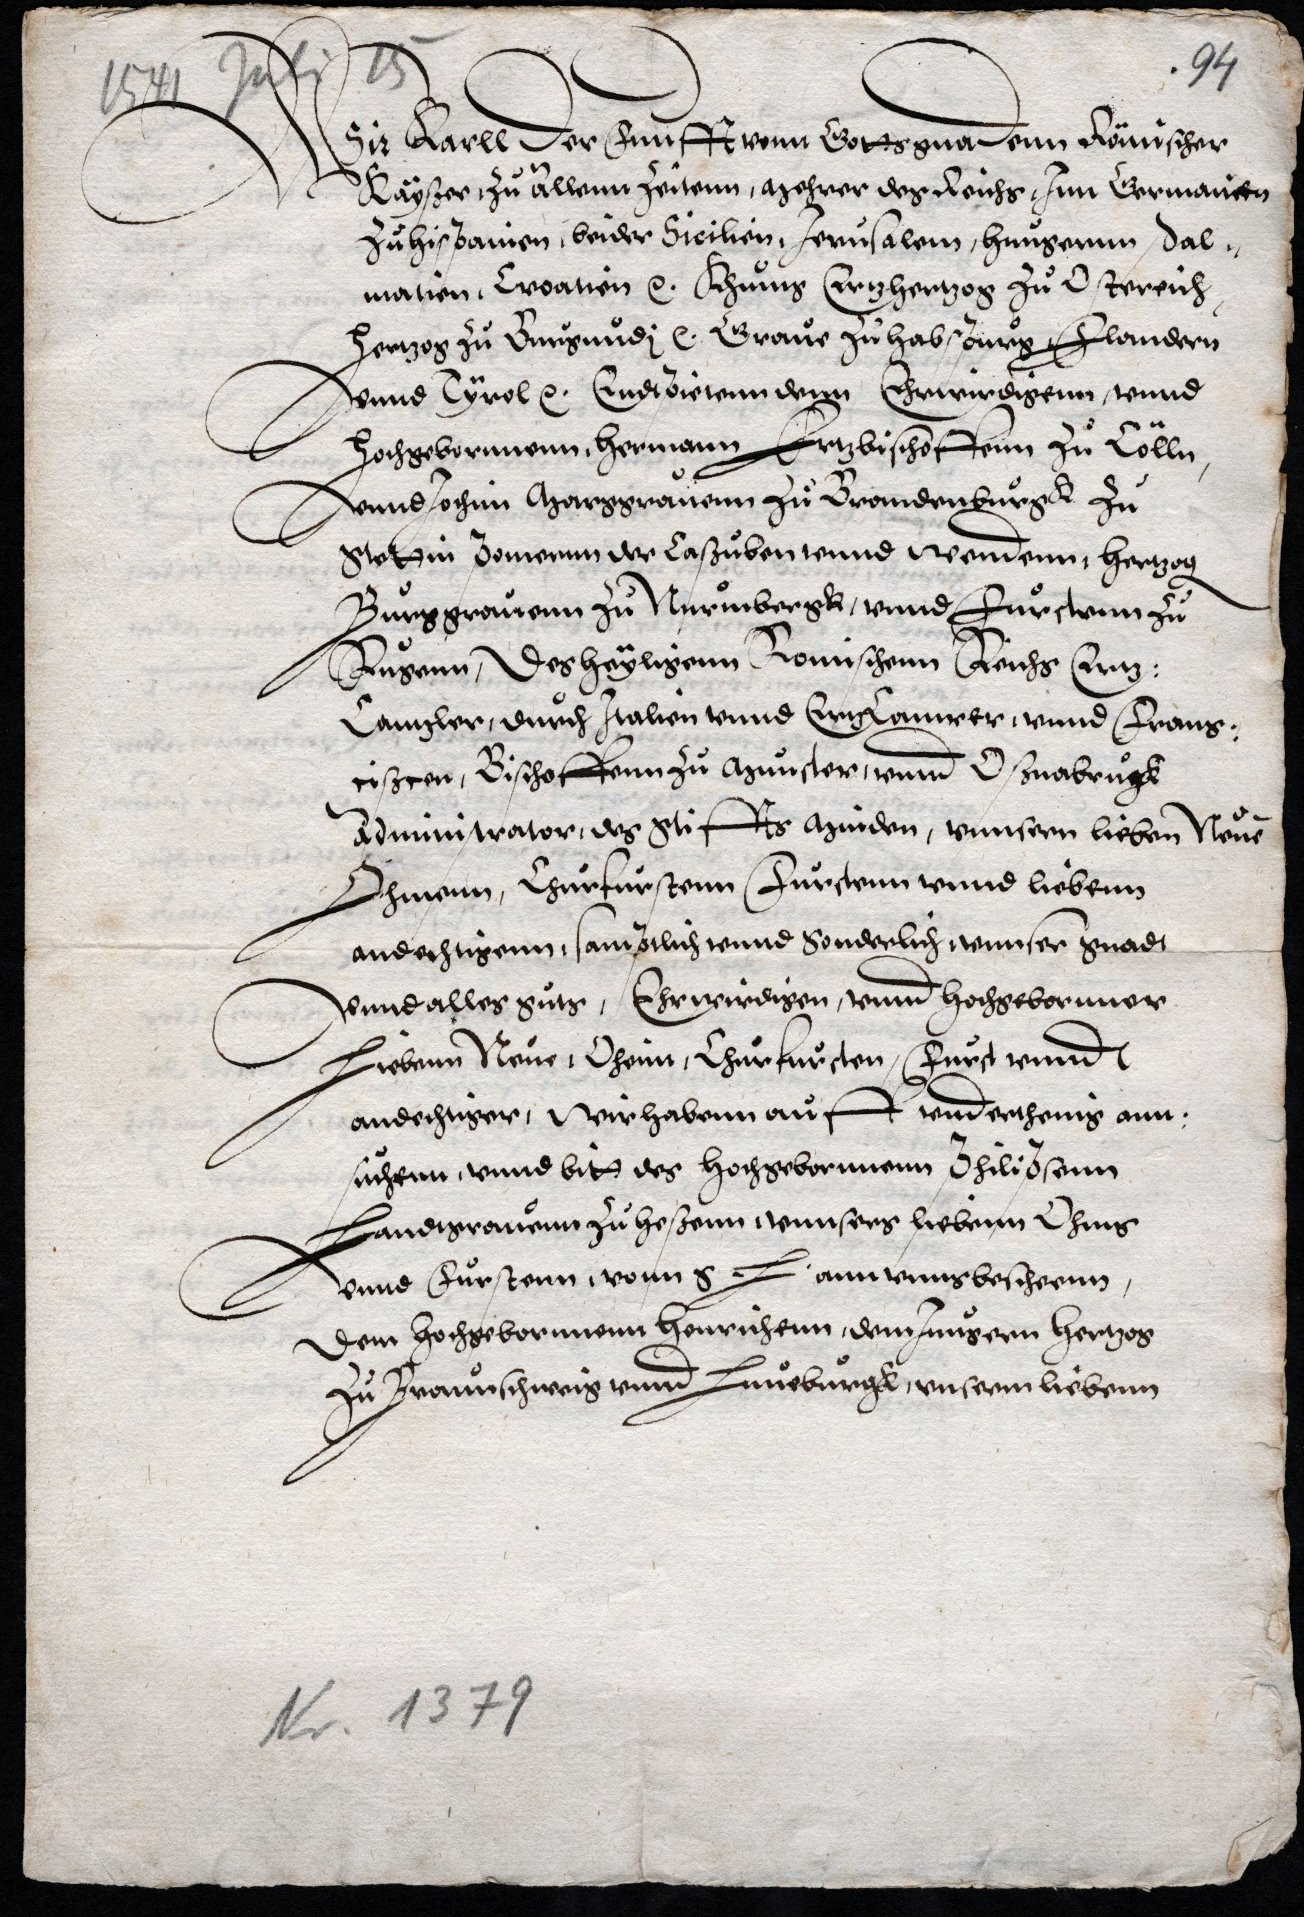 1541 Juli 15
94
Wir Karll der Funfft vonn Gotts gnadenn Römischer
Kayßer, zu allenn Zeitenn, Mehrer des Reichs, Inn Germanien
zu hispanien, beider Sicilien, Jerusalem, hungernn, Dal-
matien, Croatien etc. Khunig Ertzhertzog zu Osterreich,
Hertzog zu Burgundj etc. Graue zu habspurg, Flandern
vnnd Tyrol etc. Endpietenn denn Ehrwirdigenn, vnnd
Hochgebornnenn, Hermann Ertzbischoffenn zu Cölln,
vnnd Jochim Marggrauenn zu Brandenburgk zu
Stettin Pomernn der Caßuben vnnd Wendenn, Hertzog
Burggrauenn zu Nurmbergk, vnnd Furstenn zu
Rugenn, Des heyligenn Romischenn Reichs Ertz-
Cantzler, durch Italien vnnd ErtzCamrer, vnnd Frantz-
cißcen, Bischoffenn zu Munster, vnnd Oßnabrugk
Administrator, des Stiffts Minden, vnnsern lieben Neue
Ohmenn, Churfurstenn Furstenn vnnd liebenn
andechtigenn, samptlich vnnd Sonderlich, vnnser gnadt
vnnd alles guts, Ehrwirdigen, vnnd hochgebornner
Liebenn Neue, Oheim, Churfursten, Furst vnnd
andechtiger, Wir habenn auff vnderthenig ann-
suchenn, vnnd bitt des hochgebornnenn Philipsenn
Landtgrauenn zu heßenn, vnnsers liebenn Ohms
vnnd Furstenn, vonn S. L. ann vnns beschenn,
Dem hochgebornnenn Henrichenn, dem Jungern Hertzog
zu Braunschweig vnnd Luneburgk, vnserm liebenn
Nr. 1379